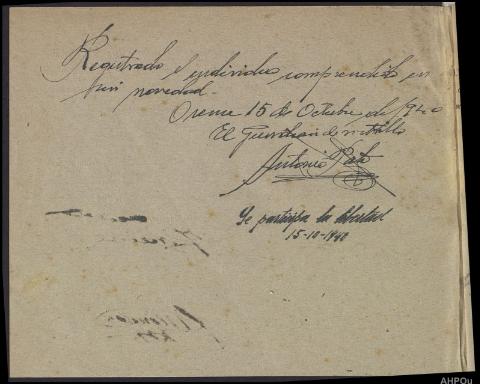 Registrado el individuo comprendido en
sin novedad.
Orense 15 de Octubre de 1940
El Guardian de rastrillo
Antonio
Se participa la libertad
15-10-1940
AHPOu